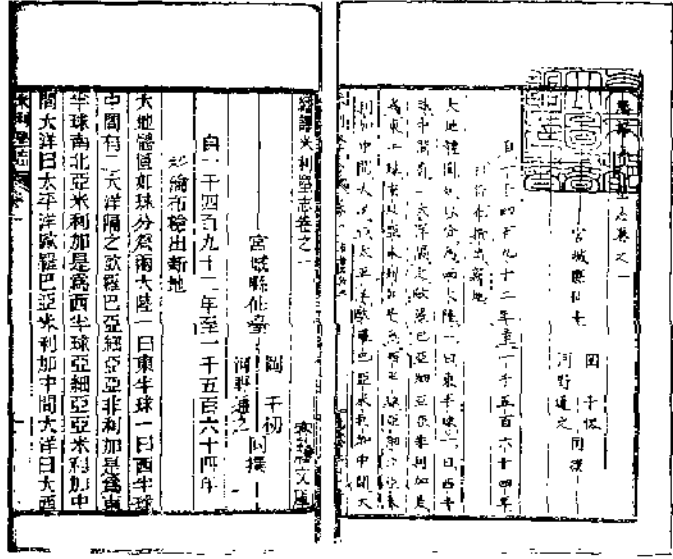 堅志卷之一
宮城縣仙臺
岡千仭
河野通之
同撰
自一千四百九十二年至一千五百六十四年
布檢出新地
大地體圓如球分爲兩大陸一曰東半球一曰西半
球中間有二大洋隔之歐羅巴亞細亞亞非利加是
爲東半球南北亞米利加是爲西半球亞細亞亞米
利加中間大洋曰太平洋歐羅巴亞米利加中間大
譯米利堅志卷之一
宮城縣仙臺
岡千仞
河野通之
同撰
文庫
自一千四百九十二年至一千五百六十四年
崙布檢出新地
大地體圓如球分爲兩大陸一曰東半球一曰西半球
中間有二大洋隔之歐羅巴亞細亞亞非利加是爲東
半球南北亞米利加是爲西半球亞細亞亞米利加中
間大洋曰太平洋歐羅巴亞米利加中間大洋曰大西
米利堅志